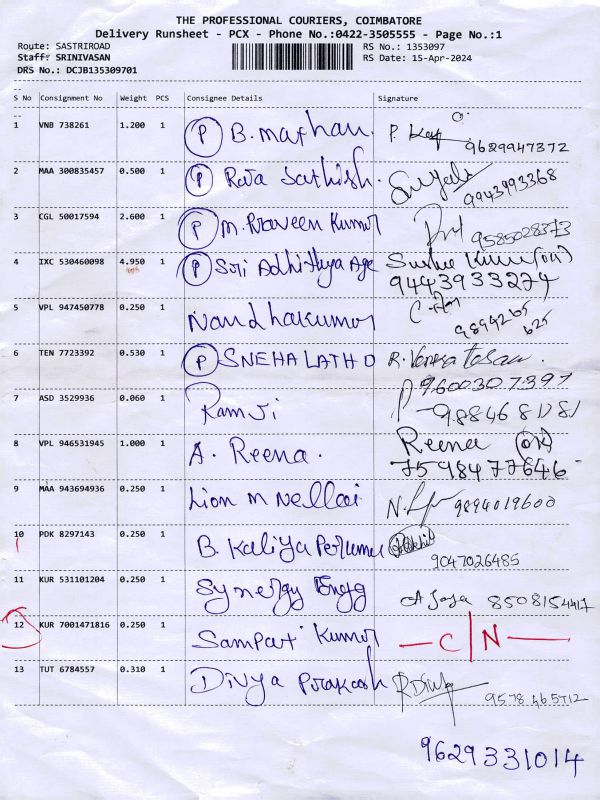 THE PROFESSIONAL COURIERS, COIMBATORE
Delivery Runsheet - PCX - Phone No.:0422-3505555 - Page No.:1
Route: SASTRIROAD RS No.: 1353097
Staff: SRINIVASAN RS Date: 15-Apr-2024
DRS No.: DCJB135309701
S No Consignment No Weight PCS Consignee Details Signature
1 VNB 738261 1.200 1 P B. Mathan. P. 9629947372
2 MAA 300835457 0.500 1 P Raja Sathish. 9943993368
3 CGL 50017594 2.600 1 P M. Praveen Kumar 9585028373
4 IXC 530460098 4.950 1 P Sri Adhithya Age 9443933274
5 VPL 947450778 0.250 1 Nandhakumar 9894265
625
6 TEN 7723392 0.530 1 P SNEHALATHO R. Venkatesan.
9600307397
7 ASD 3529936 0.060 1 Ramji 9884681781
8 VPL 946531945 1.000 1 A. Reena. Reena
7598477646
9 MAA 943694936 0.250 1 Lion M Nellai 9894019600
10 PDK 8297143 0.250 1 B. Kaliya Perumal
9047026485
11 KUR 531101204 0.250 1 Synergy Engg A Jaya 8508154417
12 KUR 7001471816 0.250 1 Sampat Kumar C/N
13 TUT 6784557 0.310 1 Divya Prakash 9578465712
9629331014